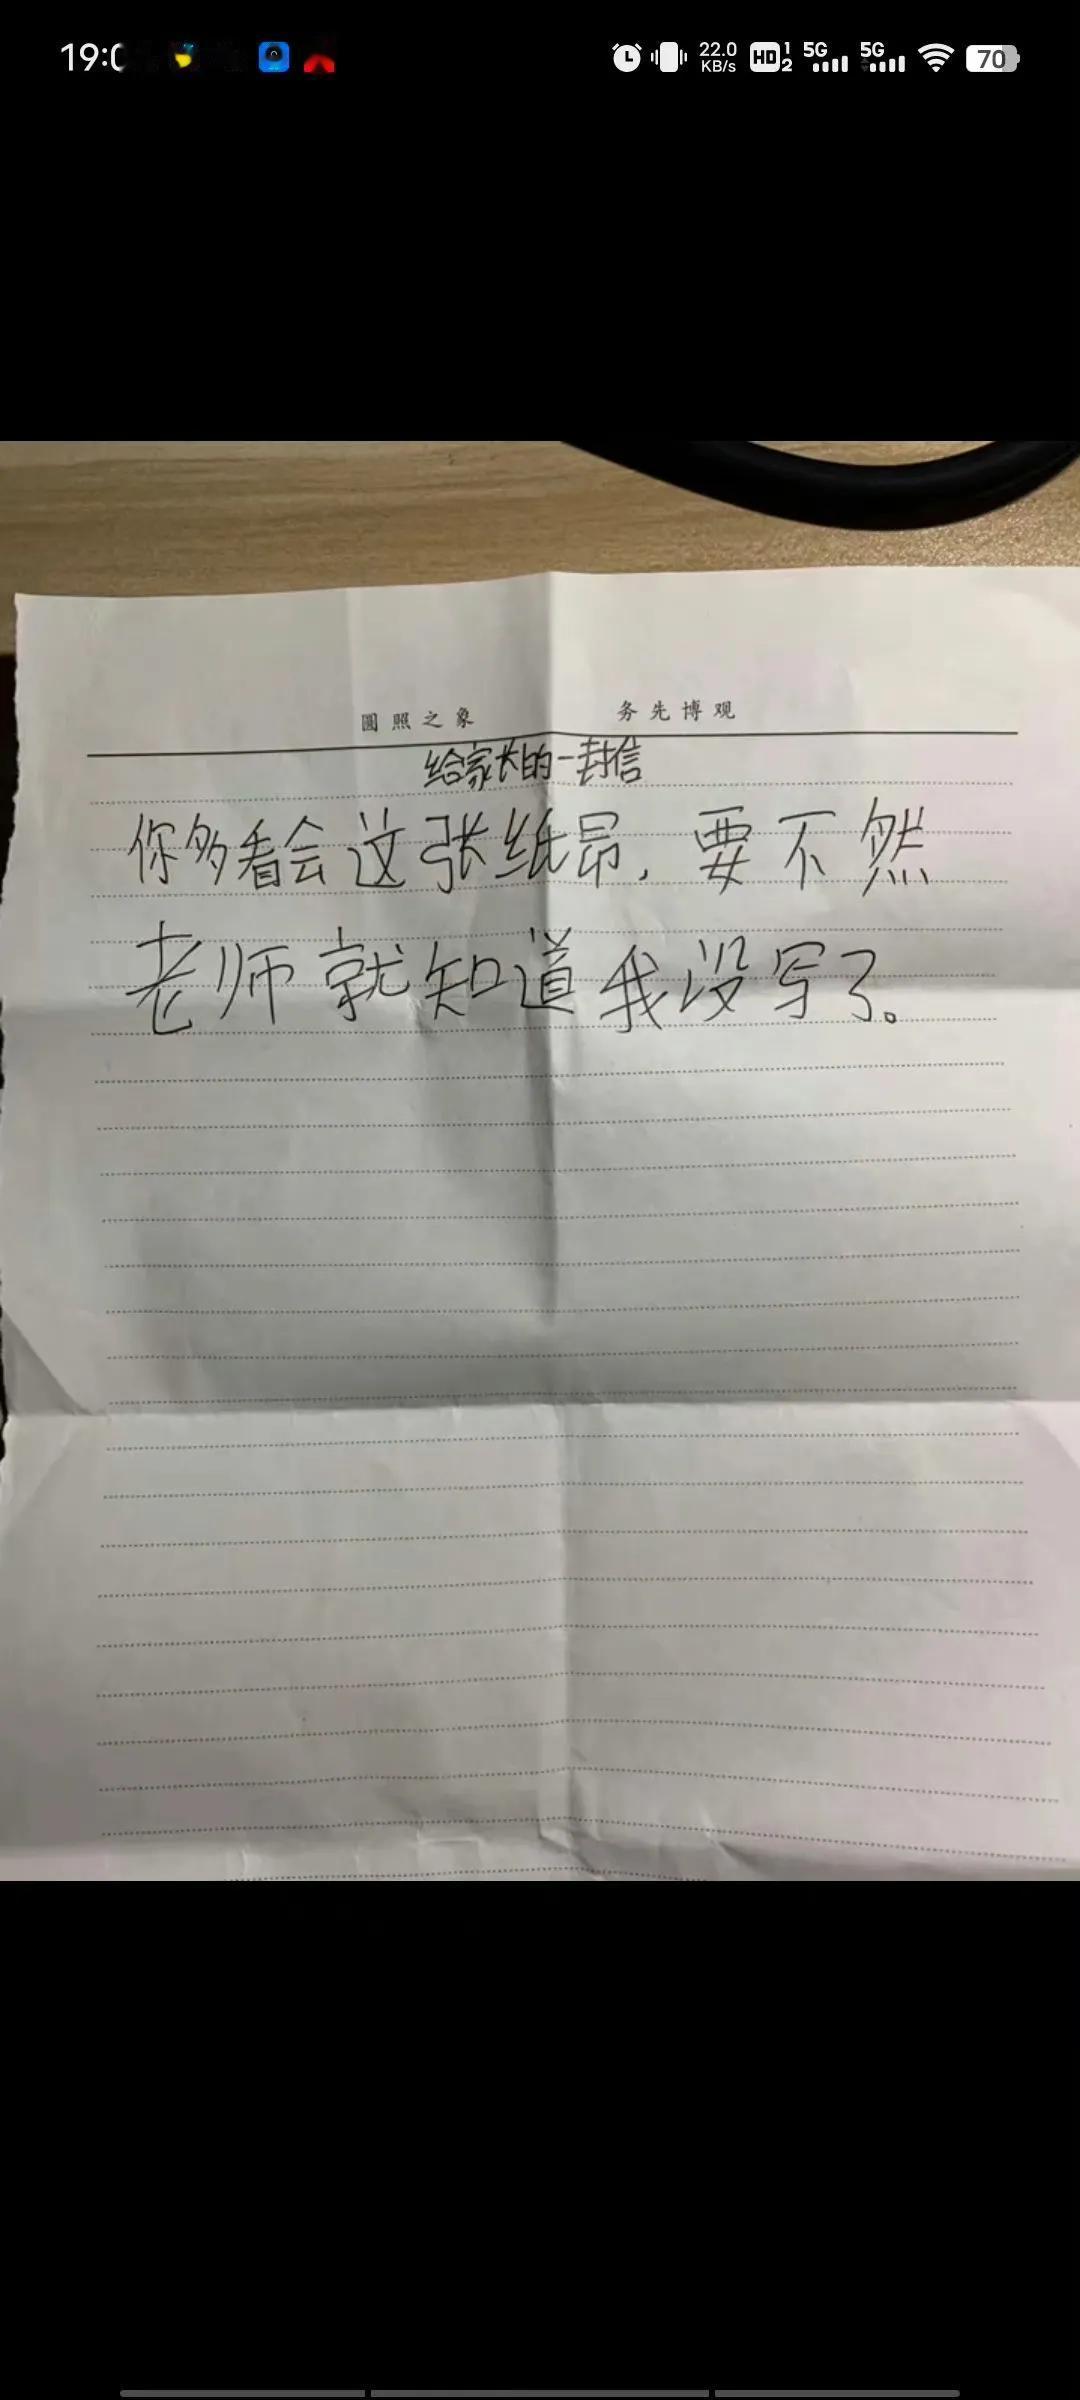 19:0
22.0
KB/s
HD 1 2
5G
5G
70
圓照之象 务先博观
给家长的一封信
你多看会这张纸昂，要不然
老师就知道我没写了。